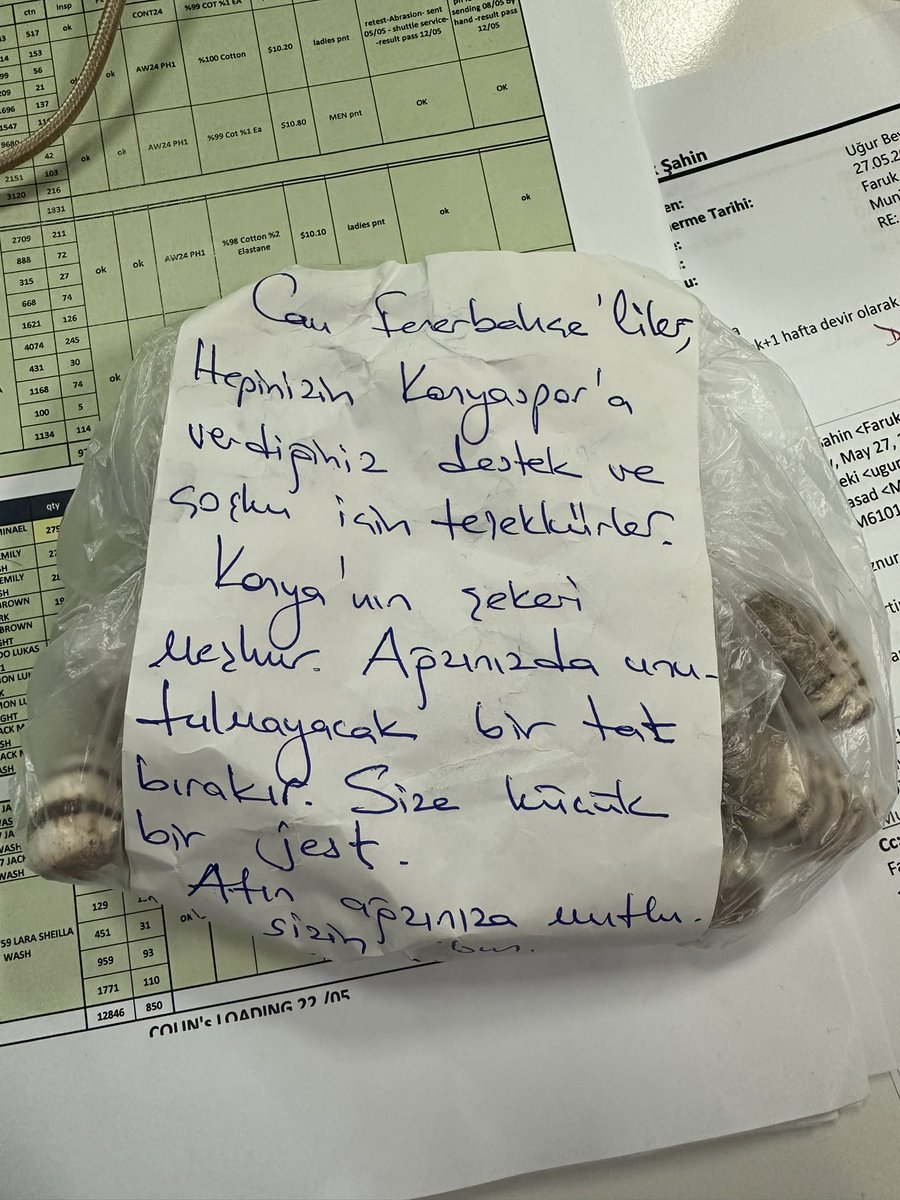 ctn
insp
CONT24
%99 COT %1 EA
517
ok
153
retest-Abrasion- sent 05/05 - shuttle service- -result pass 12/05
sending 08/05 by hand -result pass 12/05
56
ok
ok
AW24 PH1
%100 Cotton
$10.20
ladies pnt
21
1696
137
1547
42
ok
ok
AW24 PH1
%99 Cot %1 Ea
$10.80
MEN pnt
OK
OK
2151
103
3120
216
1831
2709
211
888
72
ok
ok
AW24 PH1
%98 Cotton %2 Elastane
$10.10
ladies pnt
ok
ok
315
27
668
74
1621
126
4074
245
431
30
ok
1168
74
100
5
1134
114
Şahin
Uğur Bey
27.05.2
Faruk
Muni
RE:
erme Tarihi:
k+1 hafta devir olarak
ahin <Faruk
, May 27,
eki <ugur
asad <M
M6101
Can Fenerbahçe'liler,
Hepinizin Konyaspor'a
verdiğiniz destek ve
coşku için teşekkürler.
Konya'nın şekeri
meşhur. Ağzınızda unu-
tulmayacak bir tat
bırakır. Size küçük
bir jest.
Atın ağzınıza mutlu.
sizin
qty
EMILY
BROWN
BROWN
DO LUKAS
WASH
129
59 LARA SHEILLA WASH
451
31
ok
959
93
1771
110
12846
850
COLIN's LOADING 22 /05